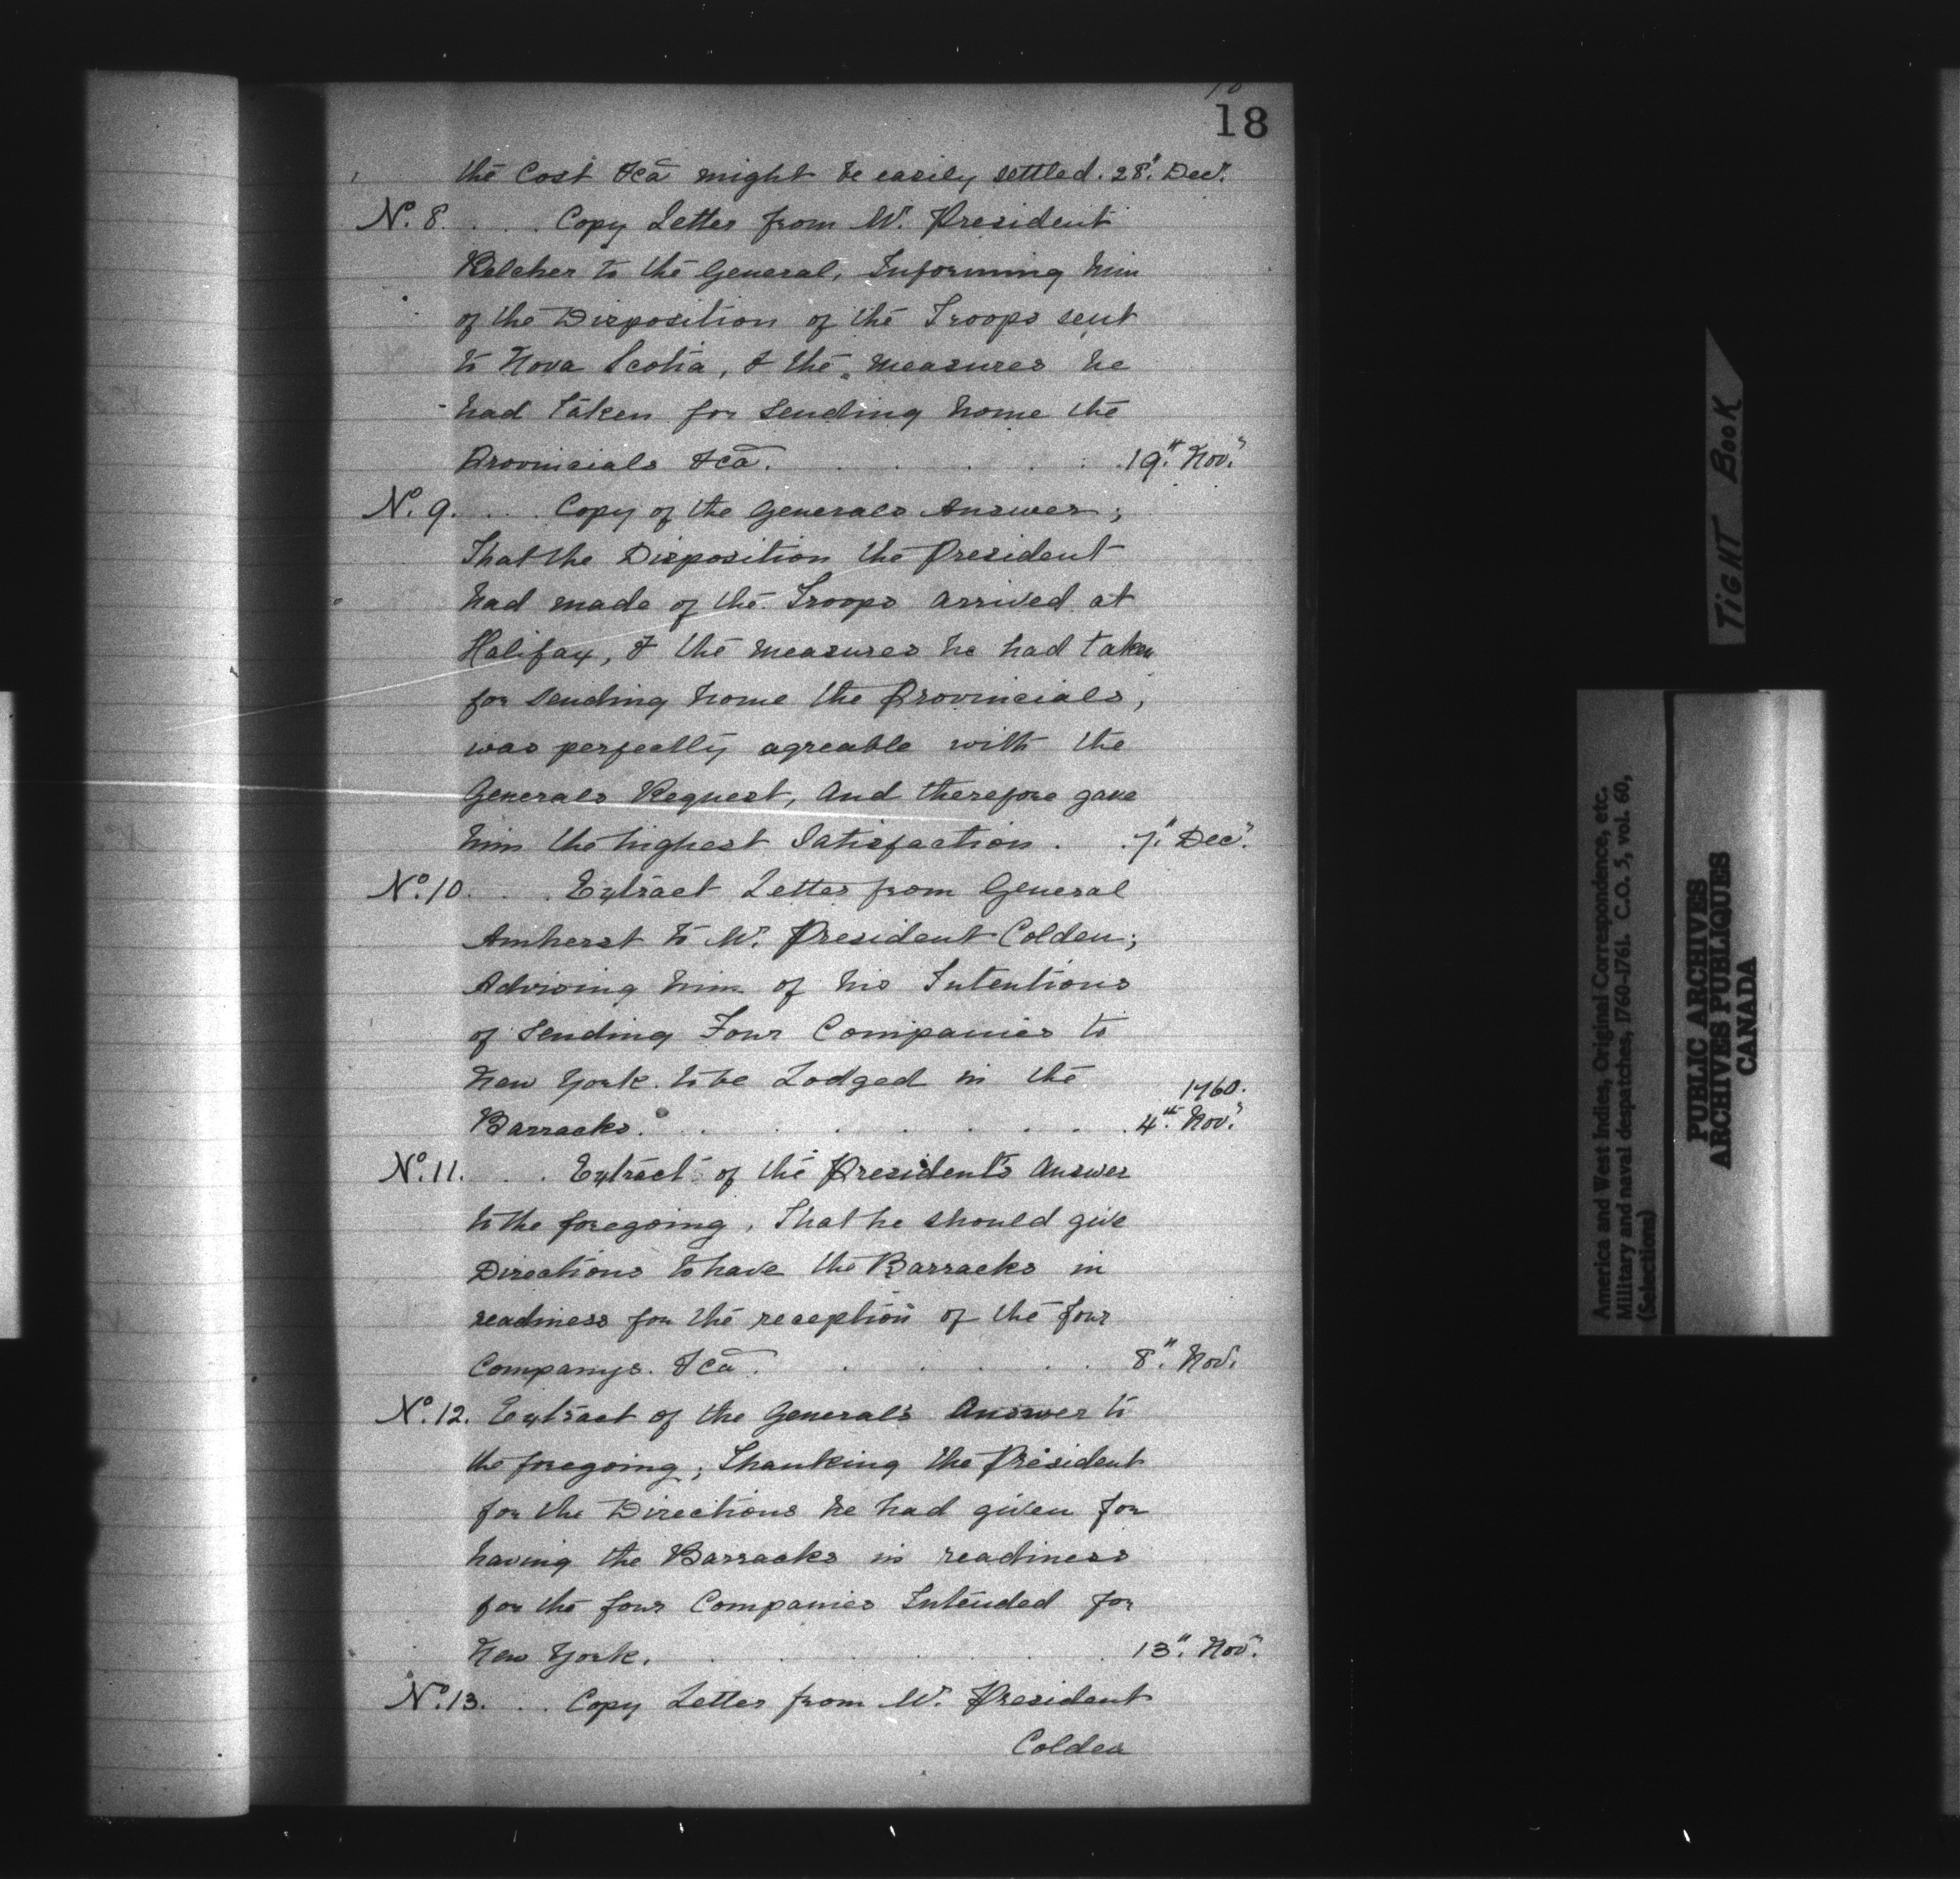 18
the Cost &ca might be easily settled. 28". Decr.
No. 8. . . . Copy Letter from Mr. President
Belcher to the General, Informing him
of the Disposition of the Troops sent
to Nova Scotia, & the measures he
had taken for sending home the
Provincials &ca. . . . . . . 19th. Novr.
No. 9. . . . Copy of the Generals Answer;
That the Disposition the President
had made of the Troops arrived at
Halifax, & the measures he had taken
for sending home the Provincials,
was perfectly agreable with the
Generals Request, and therefore gave
him the highest Satisfaction. . 7". Decr.
No. 10. . . . Extract Letter from General
Amherst to Mr. President Colden;
Advising him of his Intentions
of sending Four Companies to
New York to be Lodged in the
1760.
Barracks. . . . . . . . 4th. Novr.
No. 11. . . . Extract of the President's Answer
to the foregoing, That he should give
Directions to have the Barracks in
readiness for the reception of the four
Companys. &ca. . . . . . 8". Novr.
No. 12. Extract of the General's Answer to
the foregoing; Thanking the President
for the Directions he had given for
having the Barracks in readiness
for the four Companies Intended for
New York. . . . . . . . 13". Novr.
No. 13. . . . Copy Letter from Mr. President
Colden
TIGHT BOOK
America and West Indies, Original Correspondence, etc.
Military and naval despatches, 1760-1761. C.O. 5, vol. 60,
(Selections)
PUBLIC ARCHIVES
ARCHIVES PUBLIQUES
CANADA